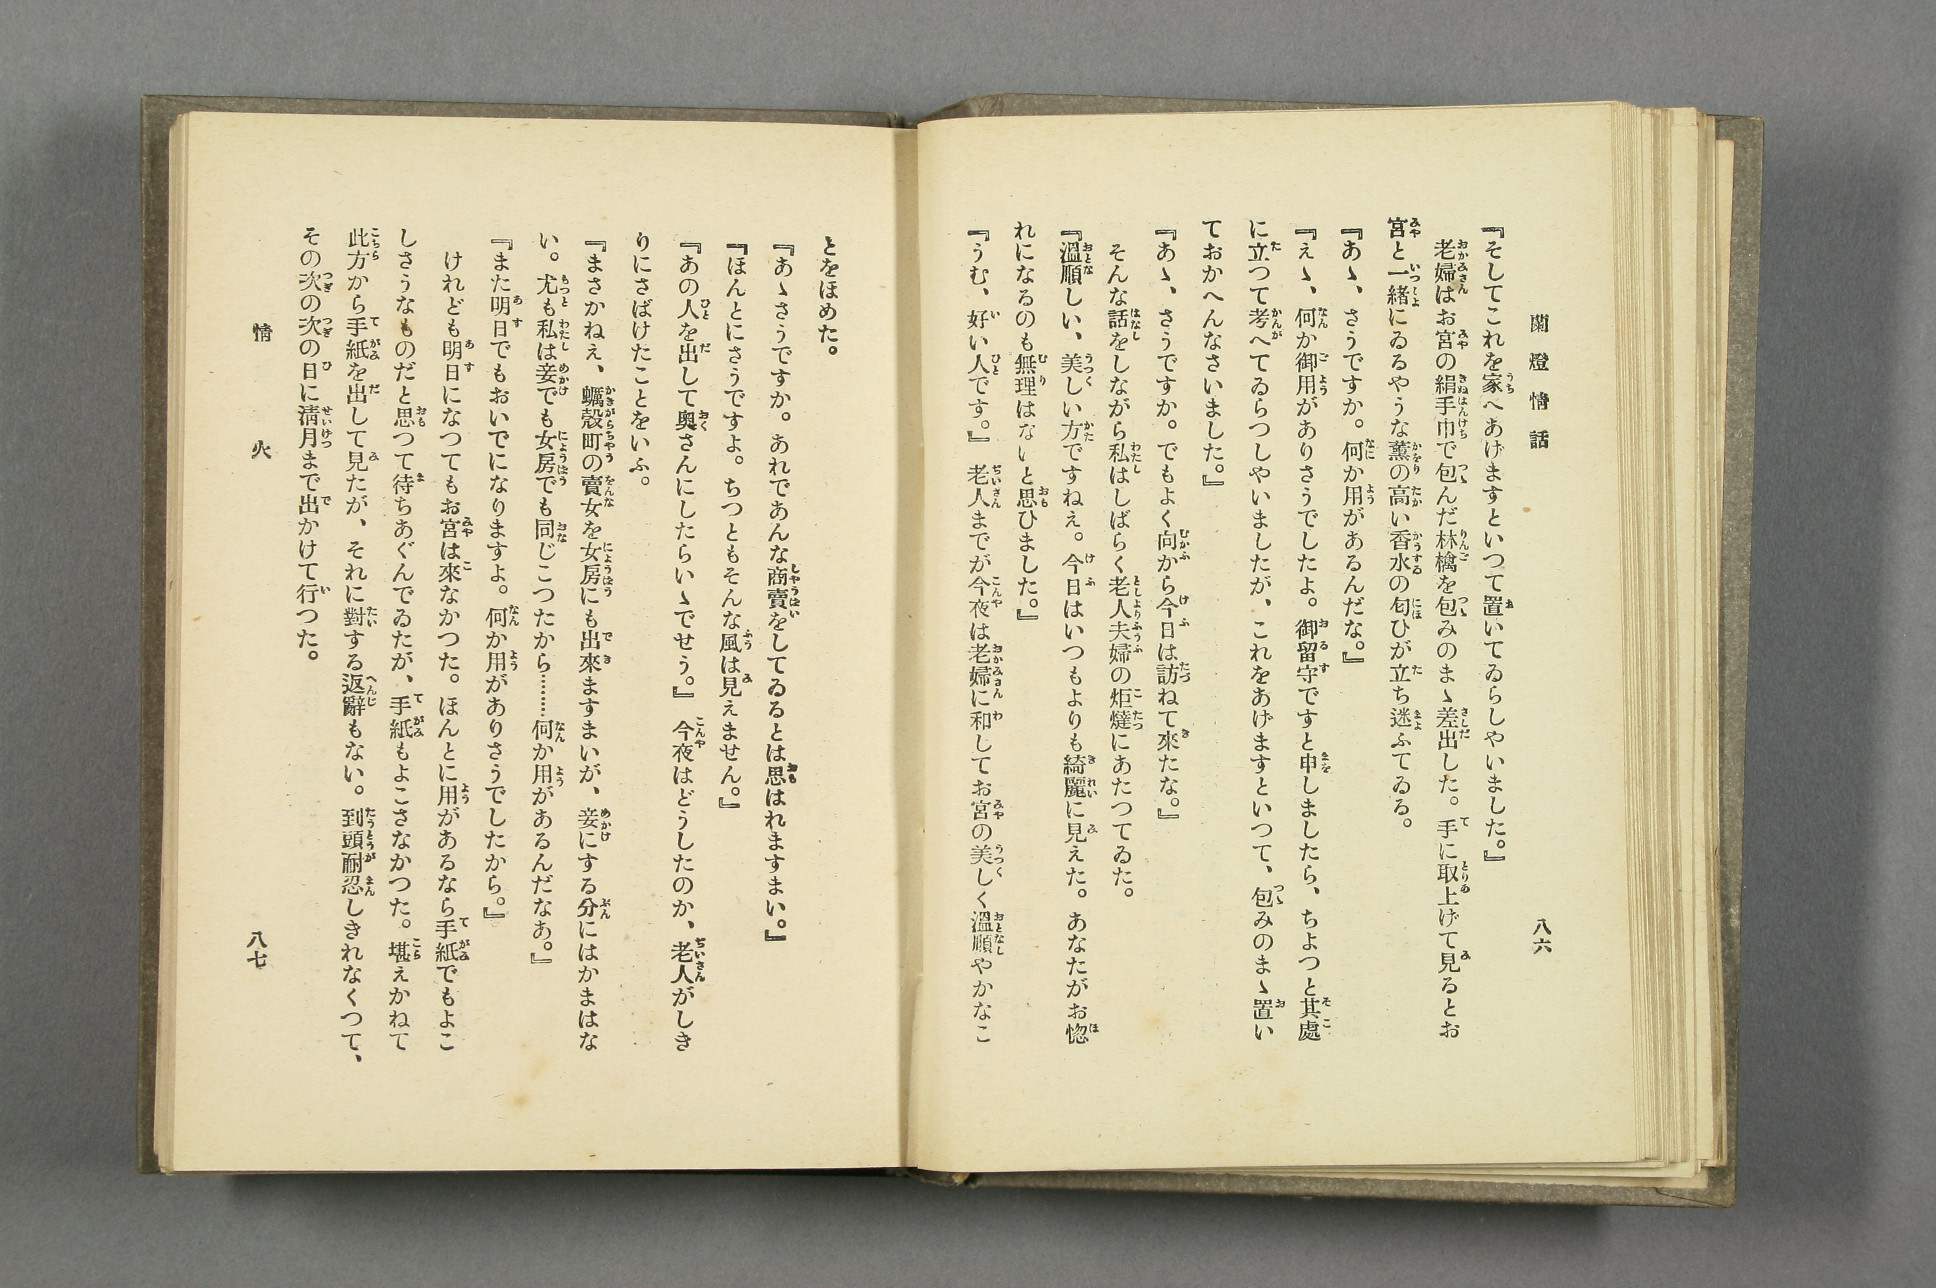 蘭燈情話
八六
『そしてこれを家へあげますといつて置いてゐらしやいました。』
老婦はお宮の絹手巾で包んだ林檎を包みのまゝ差出した。手に取上げて見るとお
宮と一緒にゐるやうな薫の高い香水の匂ひが立ち迷ふてゐる。
『あゝ、さうですか。何か用があるんだな。』
『えゝ、何か御用がありさうでしたよ。御留守ですと申しましたら、ちよつと其處
に立つて考へてゐらつしやいましたが、これをあげますといつて、包みのまゝ置い
ておかへんなさいました。』
『あゝ、さうですか。でもよく向から今日は訪ねて來たな。』
そんな話をしながら私はしばらく老人夫婦の炬燵にあたつてゐた。
『溫順しい、美しい方ですねえ。今日はいつもよりも綺麗に見えた。あなたがお惚
れになるのも無理はないと思ひました。』
『うむ、好い人です。』老人までが今夜は老婦に和してお宮の美しく溫順やかなこ
とをほめた。
『あゝさうですか。あれであんな商賣をしてゐるとは思はれますまい。』
『ほんとにさうですよ。ちつともそんな風は見えません。』
『あの人を出して奥さんにしたらいゝでせう。』今夜はどうしたのか、老人がしき
りにさばけたことをいふ。
『まさかねえ、蠣殻町の賣女を女房にも出來ますまいが、妾にする分にはかまはな
い。尤も私は妾でも女房でも同じこつたから………何か用があるんだなあ。』
『また明日でもおいでになりますよ。何か用がありさうでしたから。』
けれども明日になつてもお宮は來なかつた。ほんとに用があるなら手紙でもよこ
しさうなものだと思つて待ちあぐんでゐたが、手紙もよこさなかつた。堪えかねて
此方から手紙を出して見たが、それに對する返辭もない。到頭耐忍しきれなくつて、
その次の次の日に淸月まで出かけて行つた。
情火
八七